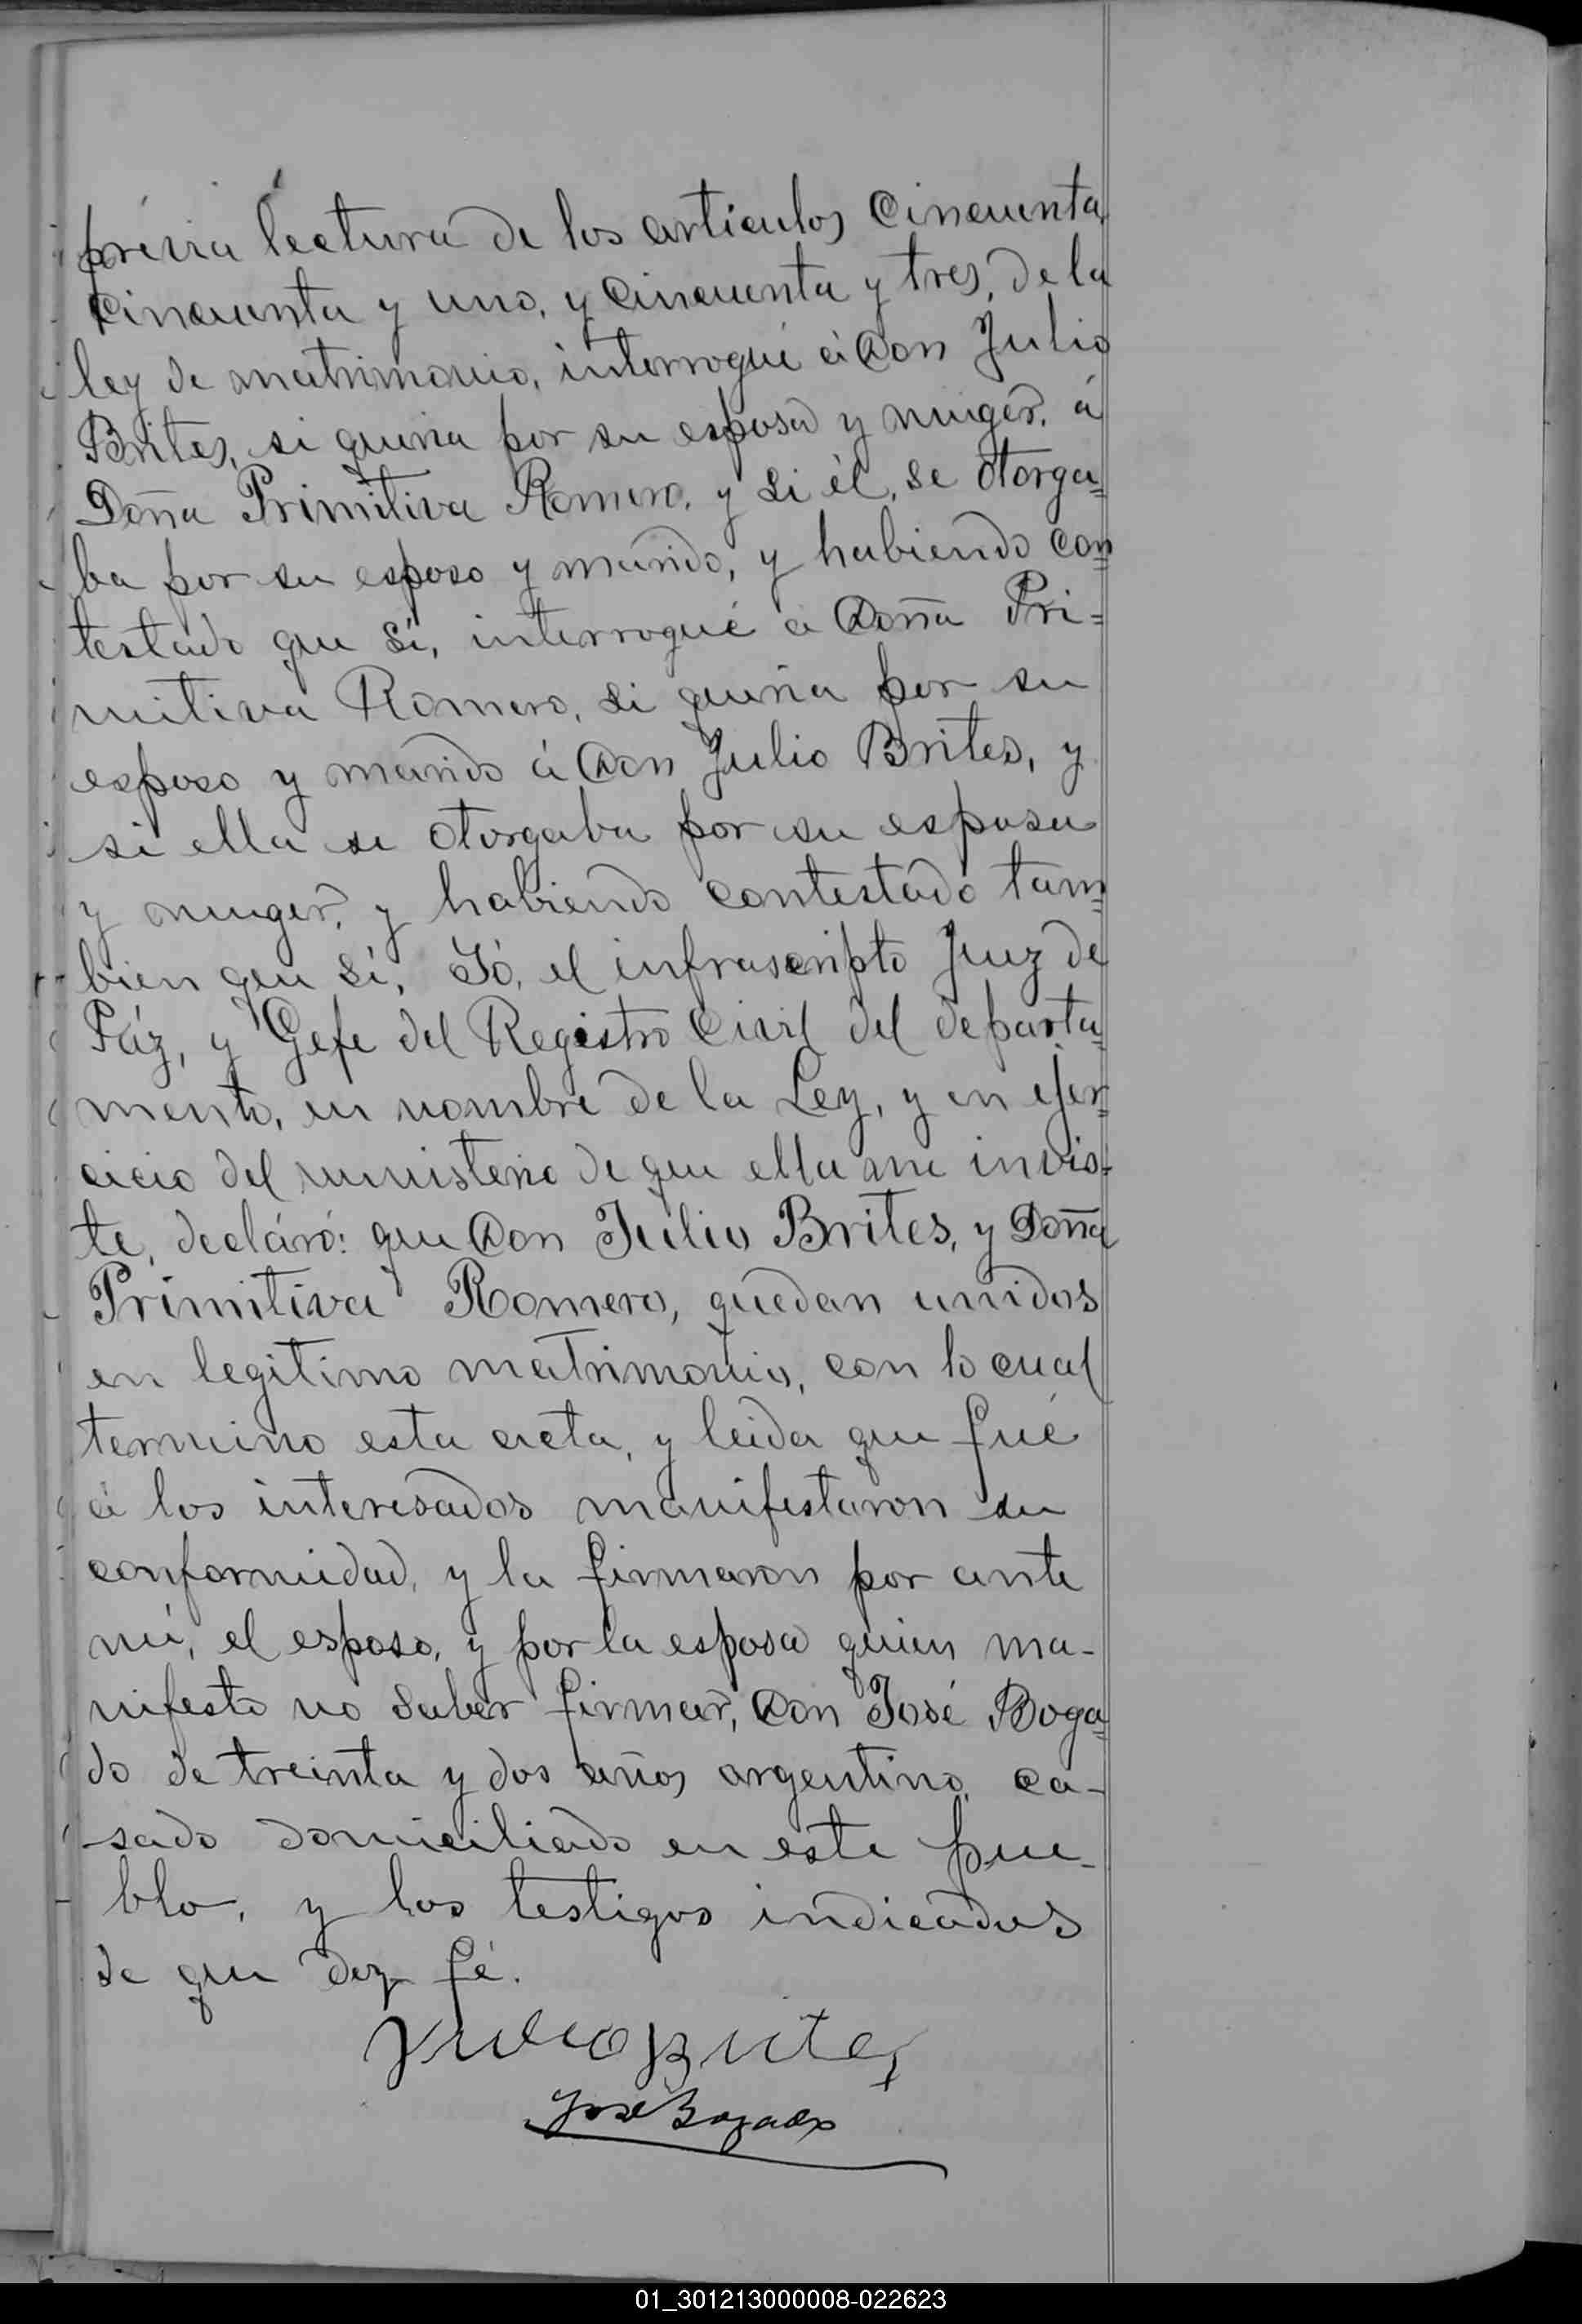 prévia lectura de los articulos Cincuenta
Cincuenta y uno, y Cincuenta y tres, de la
ley de matrimonio, interrogué á Don Julio
Brites, si queria por su esposa y muger, á
Doña Primitiva Romero, y si él, se otorga=
ba por su esposo y marido, y habiendo con=
testado que si, interrogué á Doña Pri=
mitiva Romero, si queria por su
esposo y marido á Don Julio Brites, y
si ella se otorgaba por su esposa
y muger, y habiendo contestado tam=
bien que si, Yó, el infrascripto Juez de
Páz, y Gefe del Registro Civil del departa=
mento, en nombre de la Ley, y en ejer=
cicio del ministerio de que ella me invis-
te, decláro: que Don Julio Brites, y Doña
Primitiva Romero, quedan unidos
en legitimo matrimonio, con lo cual
termino esta acta, y leida que fué
á los interesados manifestaron su
conformidad, y la firmaron por ante
mi, el esposo, y por la esposa quien ma-
nifesto no saber firmar, Don José Boga=
do de treinta y dos años argentino, ca-
sado domiciliado en este pue-
blo, y los testigos indicados
de que doy fé.
Julio Brites
José Bogado
01_301213000008-022623